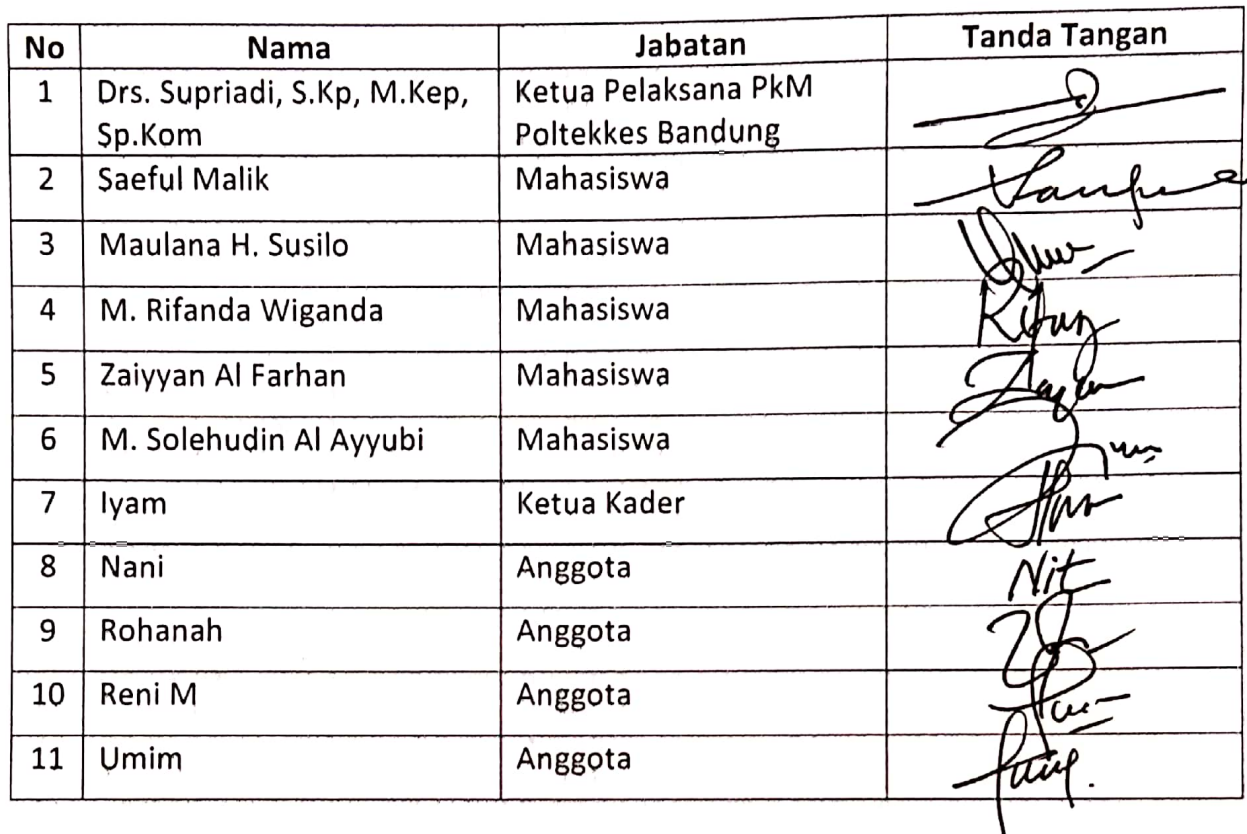 No Nama Jabatan Tanda Tangan
1 Drs. Supriadi, S.Kp, M.Kep, Ketua Pelaksana PkM
Sp.Kom Poltekkes Bandung
2 Saeful Malik Mahasiswa
3 Maulana H. Susilo Mahasiswa
4 M. Rifanda Wiganda Mahasiswa
5 Zaiyyan Al Farhan Mahasiswa
6 M. Solehudin Al Ayyubi Mahasiswa
7 Iyam Ketua Kader
8 Nani Anggota
9 Rohanah Anggota
10 Reni M Anggota
11 Umim Anggota